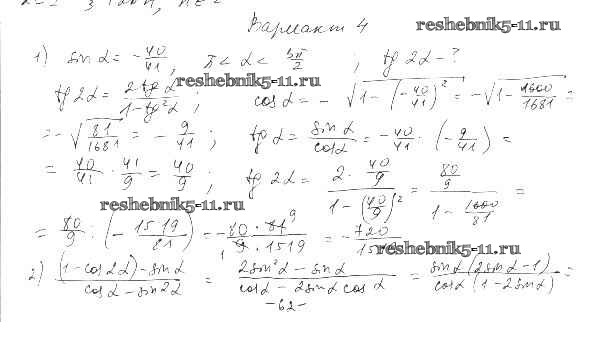 Вариант 4
reshebnik5-11.ru
1) sin α = -40/41, π < α < 3π/2; tg 2α - ?
reshebnik5-11.ru
tg 2α = 2 tg α / (1 - tg²α); cos α = - √(1 - (-40/41)²) = - √(1 - 1600/1681) =
= - √(81/1681) = - 9/41; tg α = sin α / cos α = -40/41 · (-9/41) =
= 40/41 · 41/9 = 40/9; tg 2α = (2 · 40/9) / (1 - (40/9)²) = (80/9) / (1 - 1600/81) =
reshebnik5-11.ru
= 80/9 : (- 1519/81) = - 80 · 81 9 / 1 9 · 1519 = - 720/1519
reshebnik5-11.ru
2) ((1 - cos 2α) - sin α) / (cos α - sin 2α) = (2 sin²α - sin α) / (cos α - 2 sin α cos α) = sin α (2 sin α - 1) / cos α (1 - 2 sin α) =
- 62 -